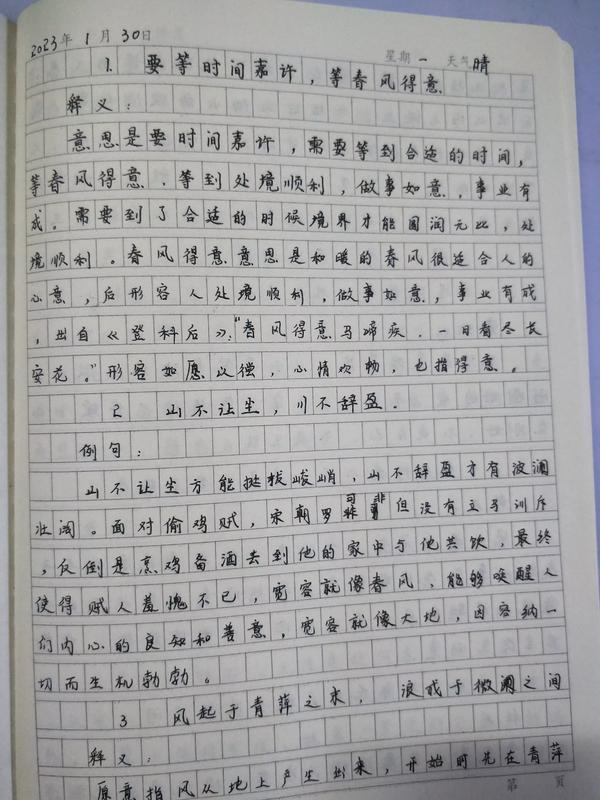 2023年 1月 30日 星期一 天气晴
1. 要等时间嘉许，等春风得意
释义：
意思是要时间嘉许，需要等到合适的时间，
等春风得意．等到处境顺利，做事如意，事业有
成。需要到了合适的时候境界才能圆润元比，处
境顺利。春风得意意思是和暖的春风很适合人的
心意，后形容人处境顺利，做事如意，事业有成
，出自《登科后》："春风得意马蹄疾．一日看尽长
安花。"形容如愿以偿，心情欢畅，也指得意。
2 山不让尘，川不辞盈．
例句：
山不让尘方能挺拔峻峭，山不辞盈才有波澜
壮阔。面对偷鸡贼，宋朝罗 但没有立予训斥
，反倒是烹鸡备酒去到他的家中与他共饮，最终
使得贼人羞愧不已，宽容就像春风，能够唤醒人
们内心的良知和善意，宽容就像大地，因容纳一
切而生机勃勃。
3 风起于青萍之末， 浪成于微澜之间
释义：
原意指风从地上产生出来，开始时先在青萍
第 页